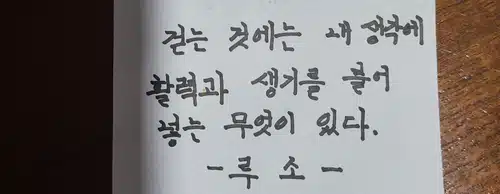 걷는 것에는 내 생각에
활력과 생기를 불어
넣는 무엇이 있다.
- 루 소 -